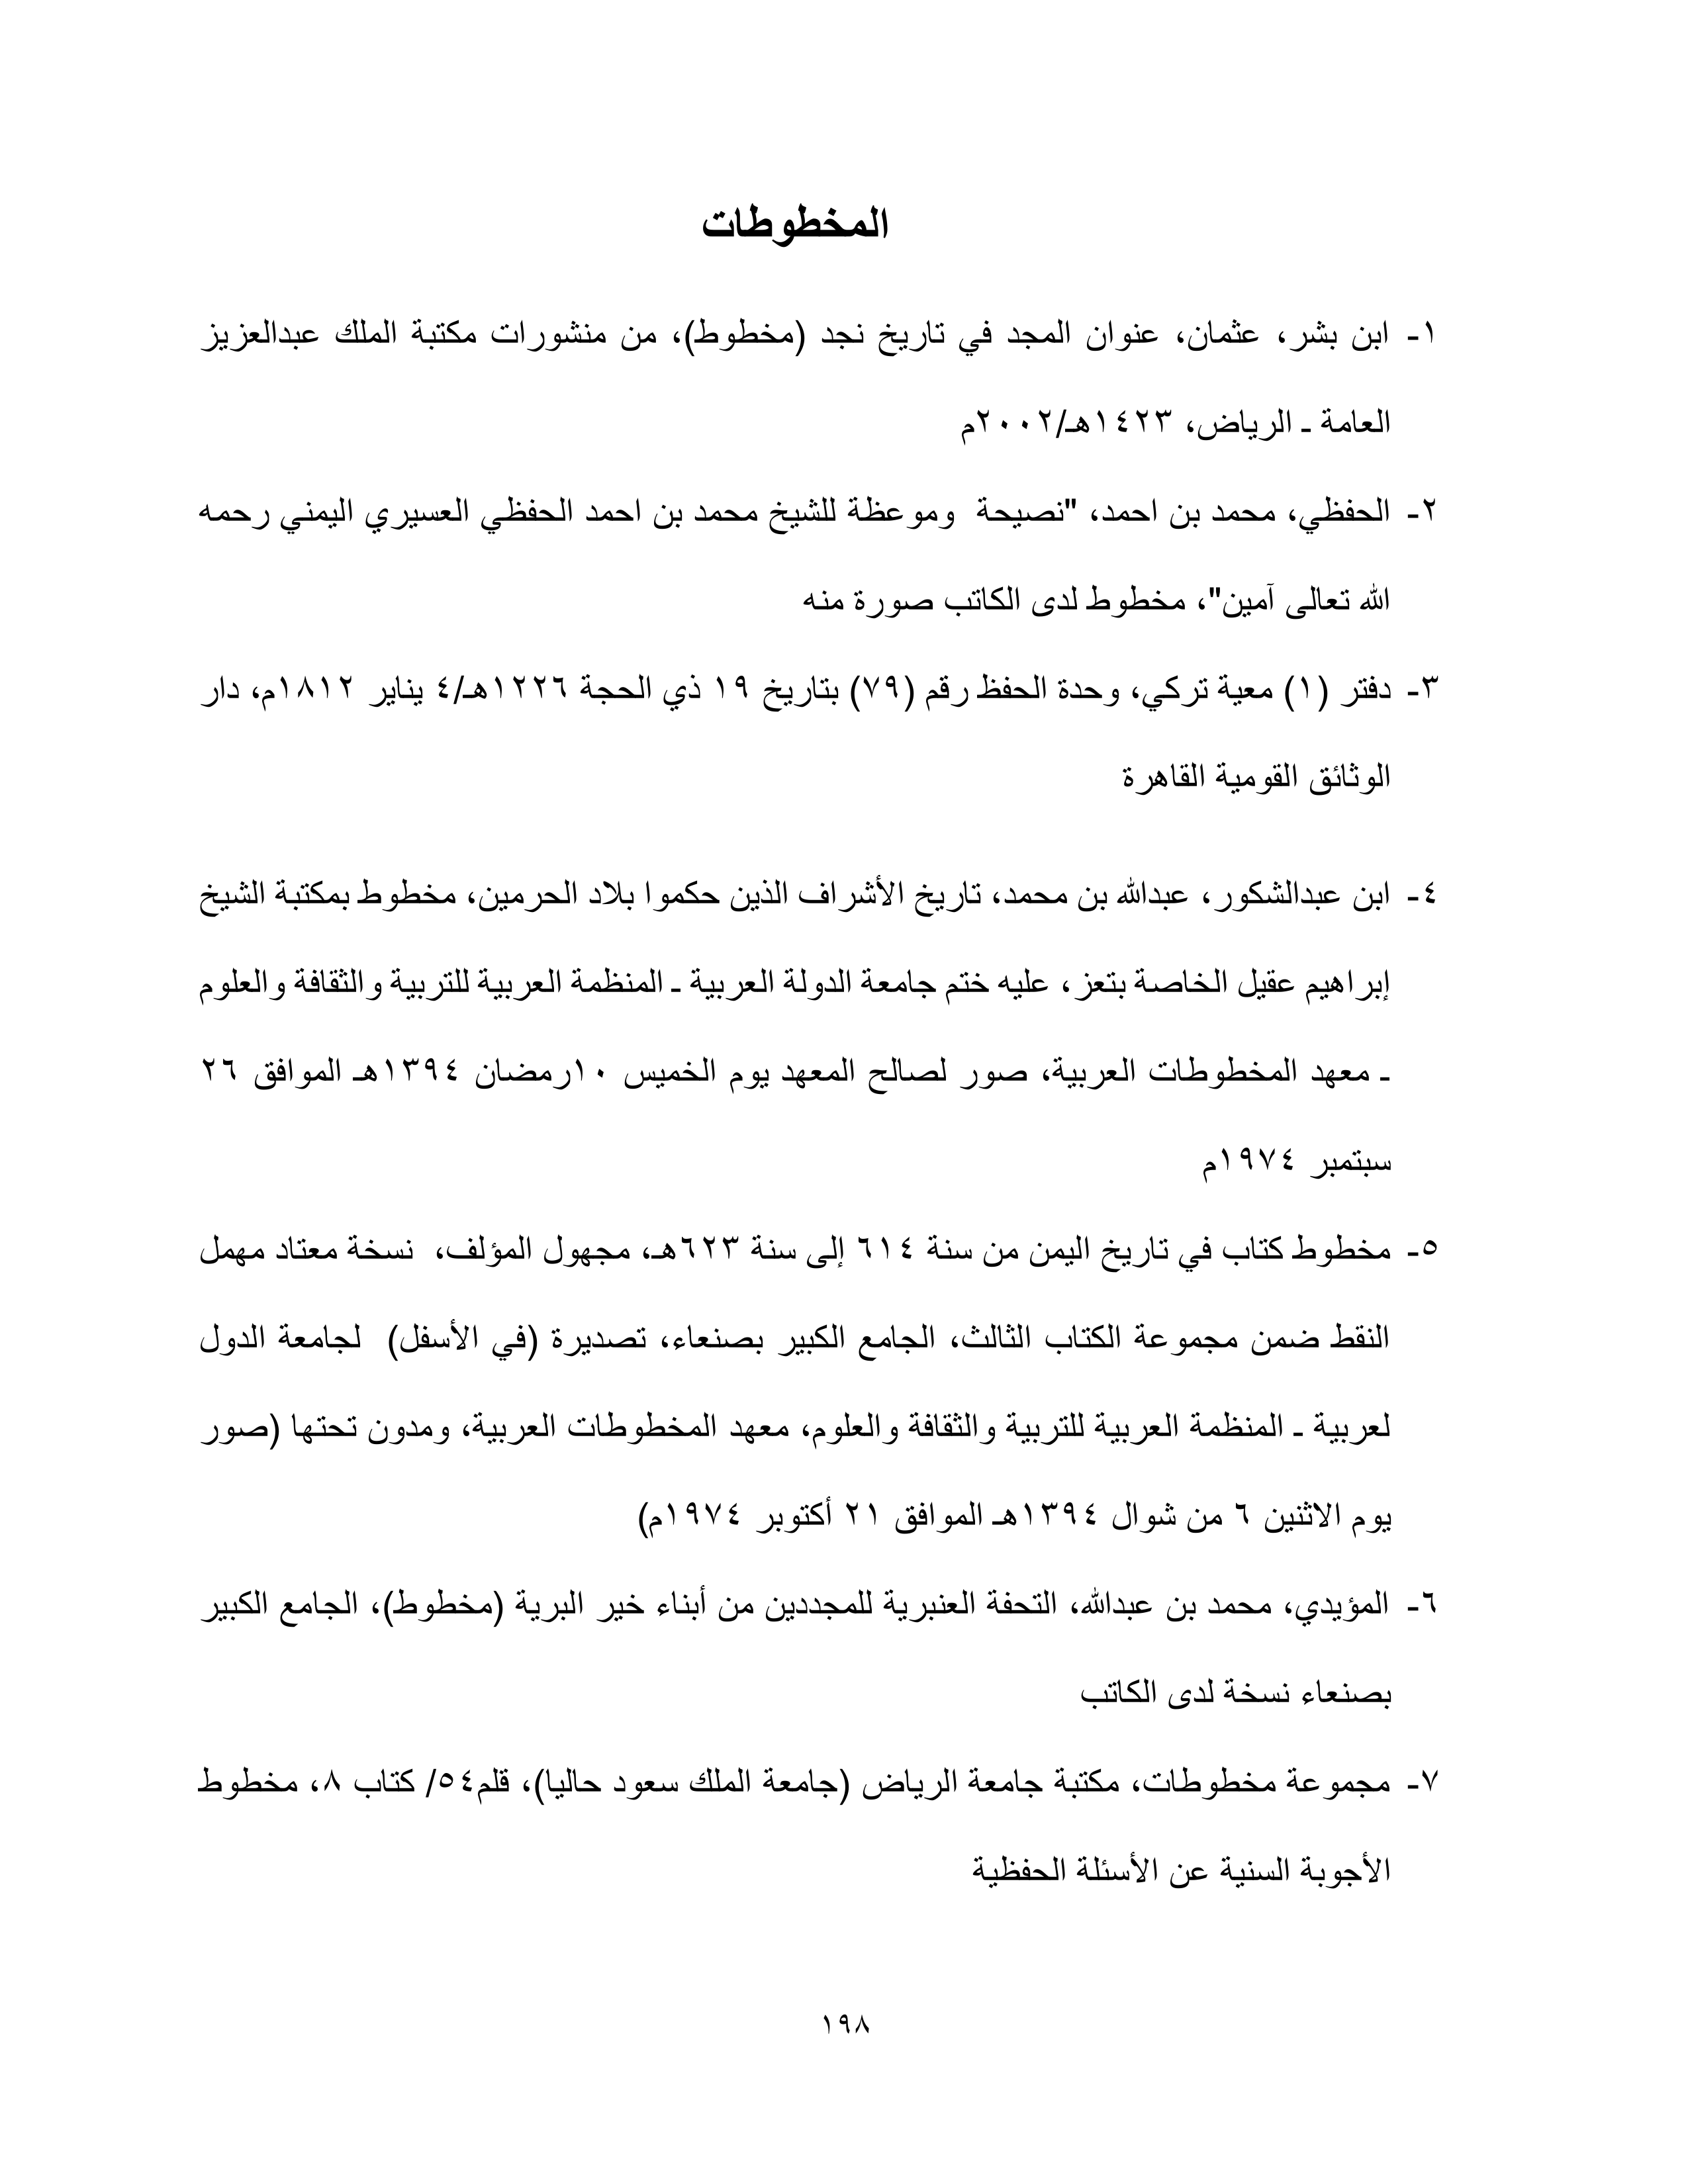 المخطوطات
١- ابن بشر، عثمان، عنوان المجد في تاريخ نجد (مخطوط)، من منشورات مكتبة الملك عبدالعزيز
العامة ـ الرياض، ١٤٢٣هـ/٢٠٠٢م
٢- الحفظي، محمد بن احمد، "نصيحة وموعظة للشيخ محمد بن احمد الحفظي العسيري اليمني رحمه
الله تعالى آمين"، مخطوط لدى الكاتب صورة منه
٣- دفتر (١) معية تركي، وحدة الحفظ رقم (٧٩) بتاريخ ١٩ ذي الحجة ١٢٢٦هـ/٤ يناير ١٨١٢م، دار
الوثائق القومية القاهرة
٤- ابن عبدالشكور، عبدالله بن محمد، تاريخ الأشراف الذين حكموا بلاد الحرمين، مخطوط بمكتبة الشيخ
إبراهيم عقيل الخاصة بتعز، عليه ختم جامعة الدولة العربية ـ المنظمة العربية للتربية والثقافة والعلوم
ـ معهد المخطوطات العربية، صور لصالح المعهد يوم الخميس ١٠رمضان ١٣٩٤هـ الموافق ٢٦
سبتمبر ١٩٧٤م
٥- مخطوط كتاب في تاريخ اليمن من سنة ٦١٤ إلى سنة ٦٢٣هـ، مجهول المؤلف، نسخة معتاد مهمل
النقط ضمن مجموعة الكتاب الثالث، الجامع الكبير بصنعاء، تصديرة (في الأسفل) لجامعة الدول
لعربية ـ المنظمة العربية للتربية والثقافة والعلوم، معهد المخطوطات العربية، ومدون تحتها (صور
يوم الاثنين ٦ من شوال ١٣٩٤هـ الموافق ٢١ أكتوبر ١٩٧٤م)
٦- المؤيدي، محمد بن عبدالله، التحفة العنبرية للمجددين من أبناء خير البرية (مخطوط)، الجامع الكبير
بصنعاء نسخة لدى الكاتب
٧- مجموعة مخطوطات، مكتبة جامعة الرياض (جامعة الملك سعود حاليا)، قلم٥٤/ كتاب ٨، مخطوط
الأجوبة السنية عن الأسئلة الحفظية
١٩٨